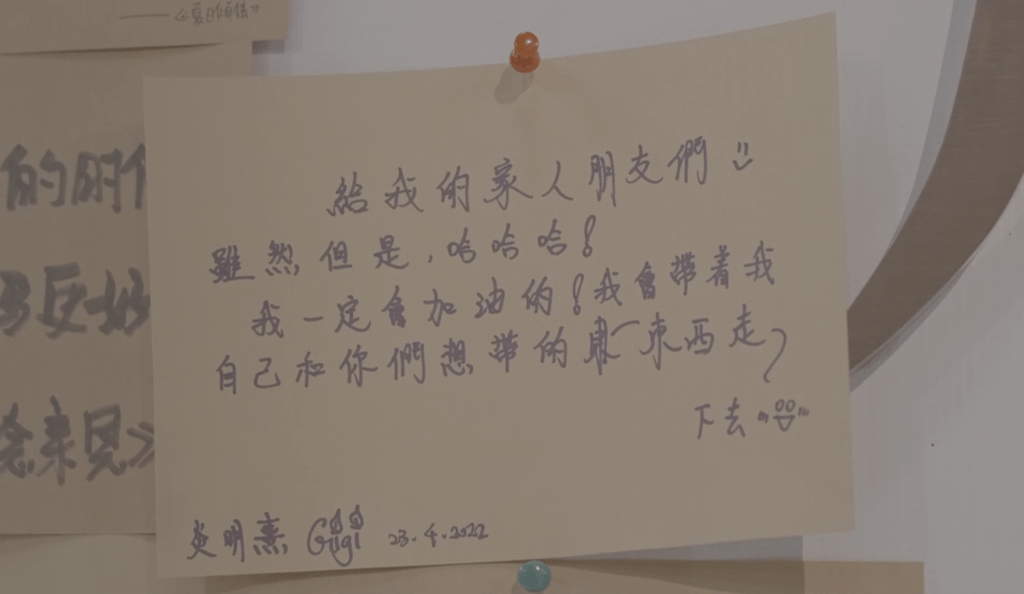 ——《夏日傾情》
的时
給我的家人朋友們
雖然,但是,哈哈哈!
我一定會加油的!我會帶着我
自己和你們想帶的東西走
下去
炎明熹 Gigi 23.4.2022